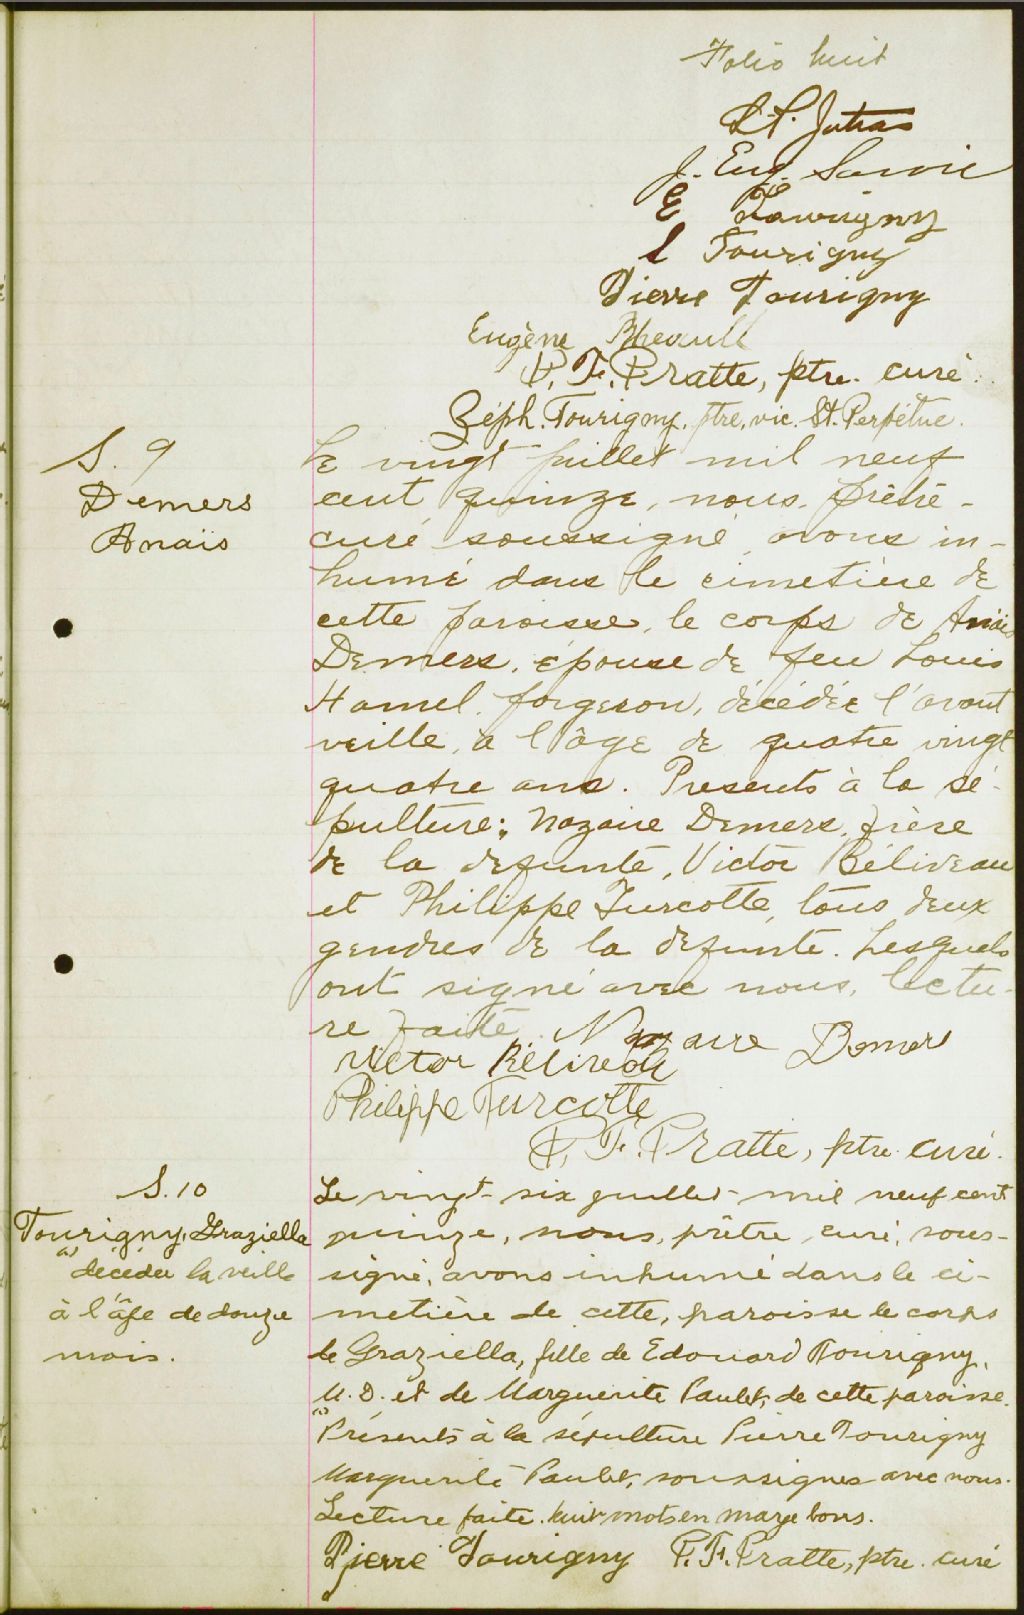 Folio huit
J. Eug. Savoie
E Tourigny
L Tourigny
Pierre Tourigny
Eugène Rheault
P. F. Pratte, ptre. curé.
Zéph. Tourigny, ptre, vic. St. Perpétue.
S. 9
Demers
Anaïs
Le vingt juillet mil neuf
cent quinze, nous, prêtre-
curé soussigné avons in-
humé dans le cimetière de
cette paroisse, le corps de Anaïs
Demers, épouse de feu Louis
Hamel, forgeron, décédée l'avant
veille, à l'âge de quatre vingt
quatre ans. Presents à la sé-
pulture: Nazaire Demers, frère
de la defunte, Victor Béliveau
et Philippe Turcotte, tous deux
gendres de la defunte. Lesquels
ont signé avec nous, lectu-
re faite. Nazaire Demers
Victor Béliveau
Philippe Turcotte
P. F. Pratte, ptre. curé.
S. 10
Tourigny, Graziella
(1) décédée la veille
à l'âge de douze
mois.
Le vingt-six juillet mil neuf cent
quinze, nous, prêtre, curé, sous-
signé, avons inhumé dans le ci-
metière de cette, paroisse le corps
de Graziella, fille de Edouard Tourigny,
M. D. et de Marguerite Paulet, de cette paroisse. (1)
Présents à la sépulture Pierre Tourigny
Marguerite Paulet, soussignés avec nous.
Lecture faite. huit mots en marge bons.
Pierre Tourigny P. F. Pratte, ptre. curé